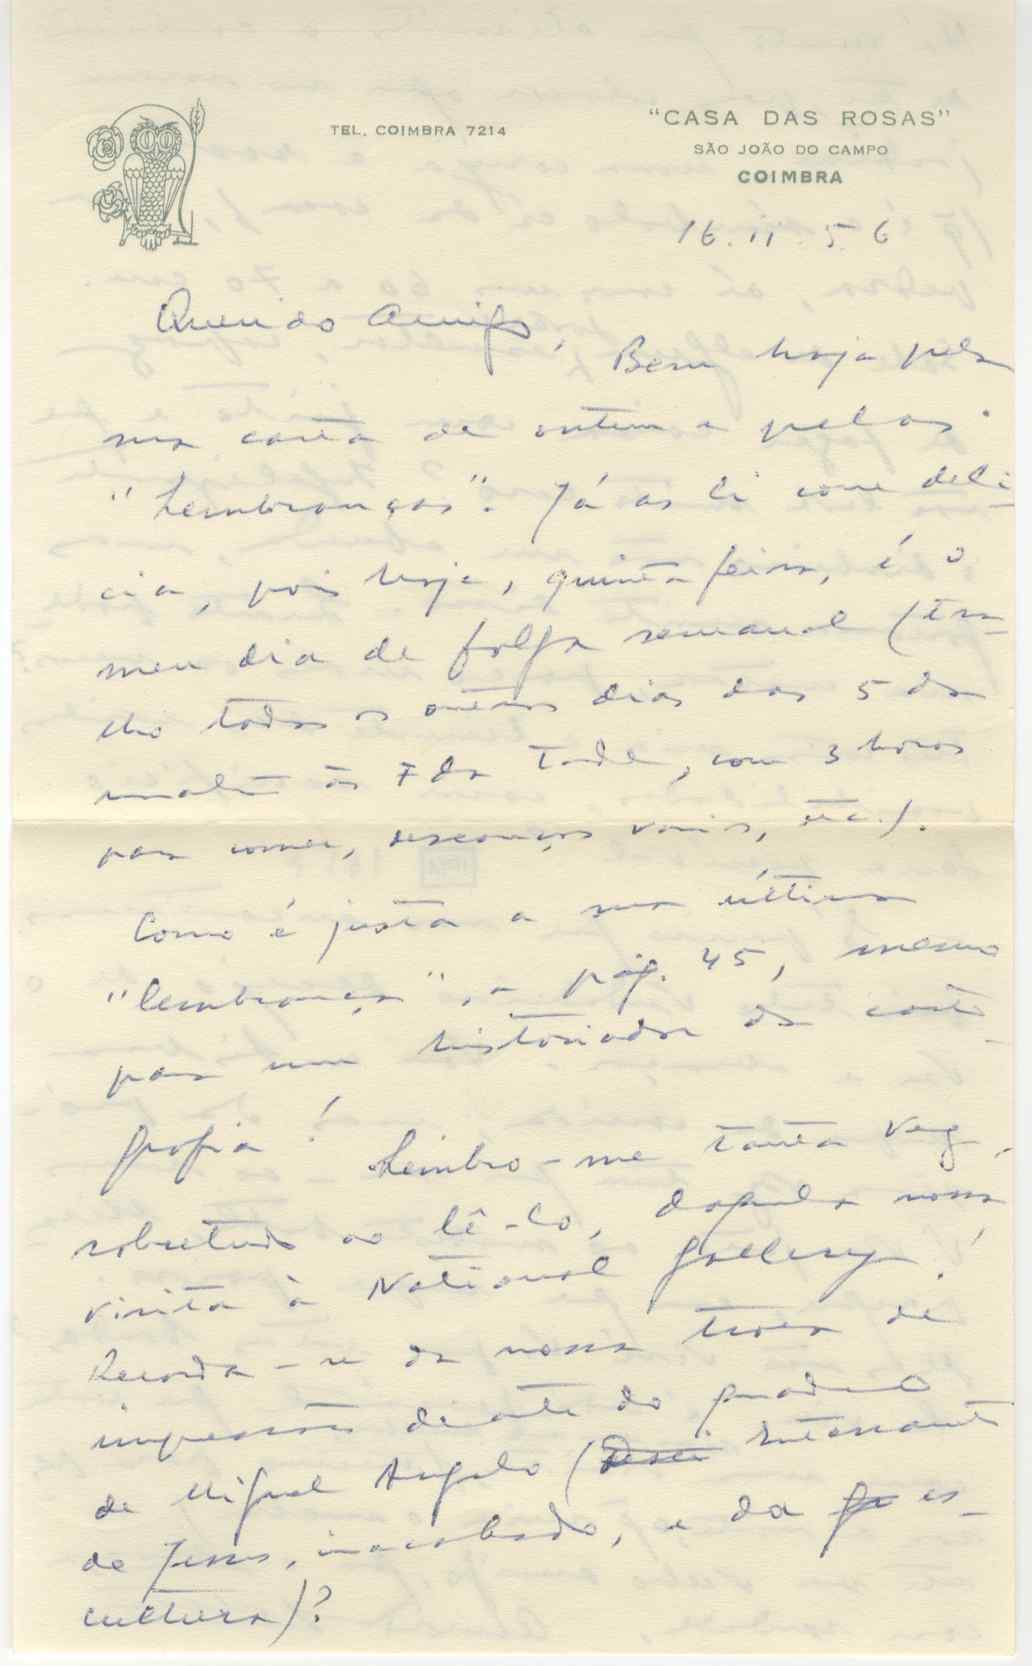 TEL. COIMBRA 7214
"CASA DAS ROSAS"
SÃO JOÃO DO CAMPO
COIMBRA
16.II.56
Querido Amigo,
Bem haja pela
sua carta de ontem e pelas
"Lembranças". Já as li com delí-
cia, pois hoje, quinta feira, é o
meu dia de folga semanal (tra-
lho todos os outros dias das 5 da
manhã às 7 da tarde, com 3 horas
para comer, descanços vários, etc.).
Como é justa a sua última
"lembrança", a pág. 45, mesmo
para um historiador da carto-
grafia! Lembro-me tanta vez,
sobretudo ao lê-lo, daquela nossa
visita à National Gallery!
Recorda-se da nossa troca de
impressões diante do quadro
de Miguel Angelo ( Enterramento
de Jesus, inacabado, e da es-
cultura)?